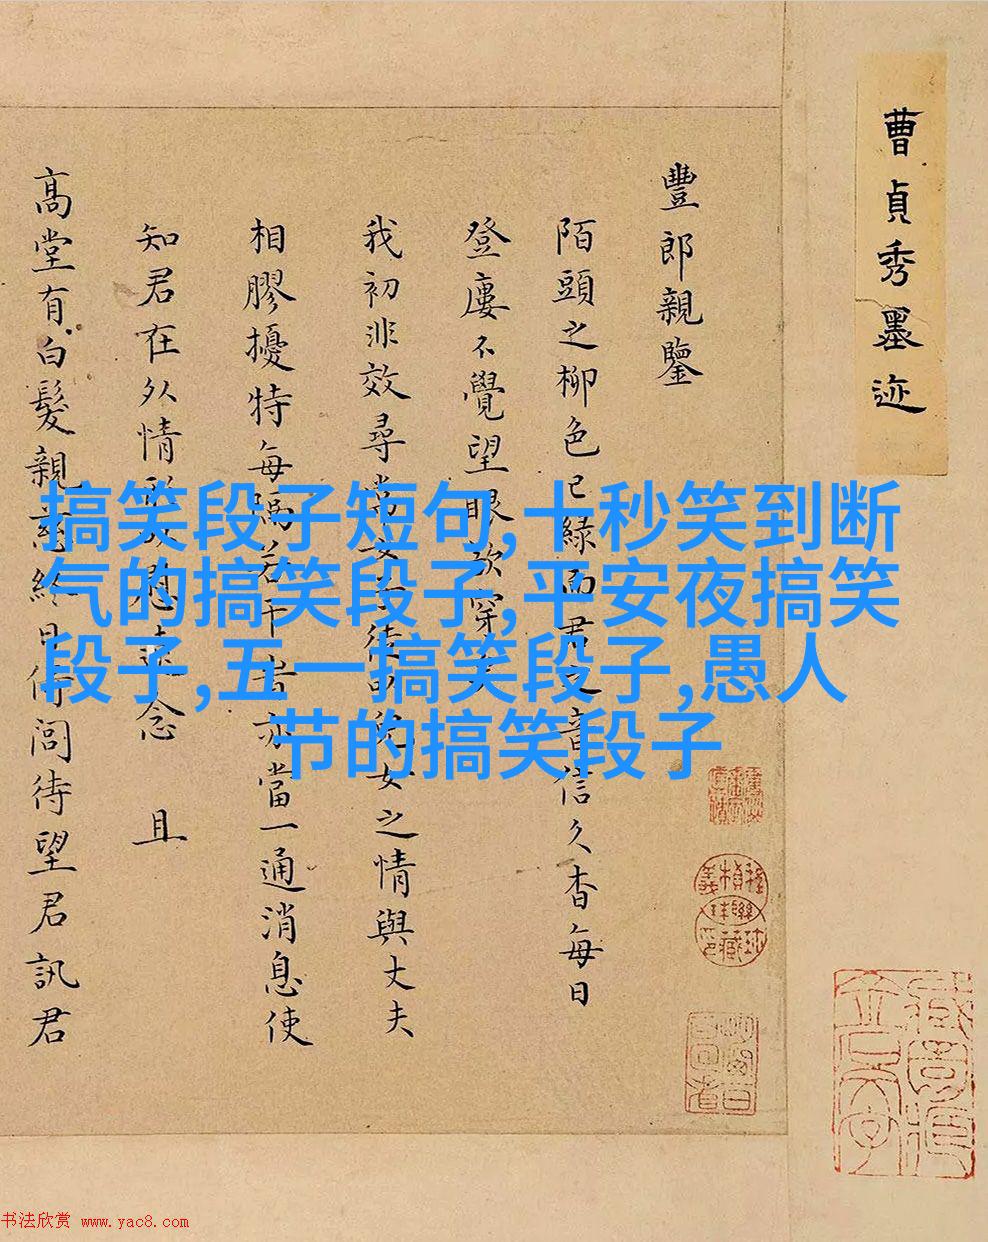 曹貞秀墨迹
豐郎親鑒
陌頭之柳色已緑而君之音信久杳每日
登廔不覺望眼欲穿
我初非效尋常女子徒以兒女之情與丈夫
相膠擾特每隔若干亦當一通消息使
知君在外情形以慰遠念 且
高堂有白髮親慈終日倚閭待望君訊君
搞笑段子短句,十秒笑到断
气的搞笑段子,平安夜搞笑
段子,五一搞笑段子,愚人
节的搞笑段子
书法欣赏 www.yac8.com